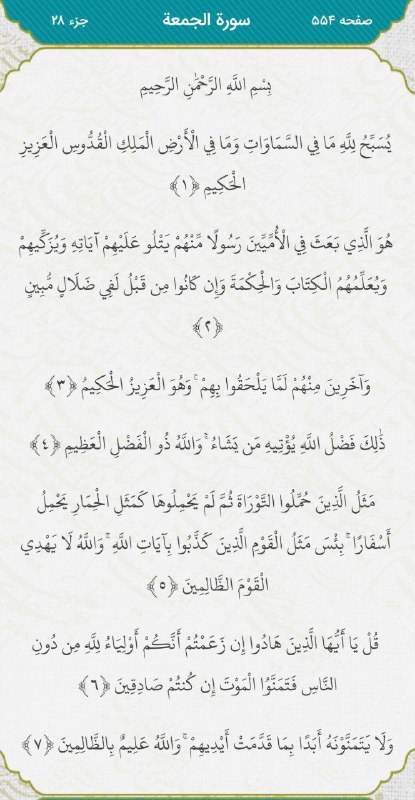 صفحه ۵۵۴ سورة الجمعة جزء ۲۸
بِسْمِ اللَّهِ الرَّحْمَٰنِ الرَّحِيمِ
يُسَبِّحُ لِلَّهِ مَا فِي السَّمَاوَاتِ وَمَا فِي الْأَرْضِ الْمَلِكِ الْقُدُّوسِ الْعَزِيزِ
الْحَكِيمِ ﴿۱﴾
هُوَ الَّذِي بَعَثَ فِي الْأُمِّيِّينَ رَسُولًا مِّنْهُمْ يَتْلُو عَلَيْهِمْ آيَاتِهِ وَيُزَكِّيهِمْ
وَيُعَلِّمُهُمُ الْكِتَابَ وَالْحِكْمَةَ وَإِن كَانُوا مِن قَبْلُ لَفِي ضَلَالٍ مُّبِينٍ
﴿۲﴾
وَآخَرِينَ مِنْهُمْ لَمَّا يَلْحَقُوا بِهِمْ ۚ وَهُوَ الْعَزِيزُ الْحَكِيمُ ﴿۳﴾
ذَٰلِكَ فَضْلُ اللَّهِ يُؤْتِيهِ مَن يَشَاءُ ۚ وَاللَّهُ ذُو الْفَضْلِ الْعَظِيمِ ﴿۴﴾
مَثَلُ الَّذِينَ حُمِّلُوا التَّوْرَاةَ ثُمَّ لَمْ يَحْمِلُوهَا كَمَثَلِ الْحِمَارِ يَحْمِلُ
أَسْفَارًا ۚ بِئْسَ مَثَلُ الْقَوْمِ الَّذِينَ كَذَّبُوا بِآيَاتِ اللَّهِ ۚ وَاللَّهُ لَا يَهْدِي
الْقَوْمَ الظَّالِمِينَ ﴿۵﴾
قُلْ يَا أَيُّهَا الَّذِينَ هَادُوا إِن زَعَمْتُمْ أَنَّكُمْ أَوْلِيَاءُ لِلَّهِ مِن دُونِ
النَّاسِ فَتَمَنَّوُا الْمَوْتَ إِن كُنتُمْ صَادِقِينَ ﴿۶﴾
وَلَا يَتَمَنَّوْنَهُ أَبَدًا بِمَا قَدَّمَتْ أَيْدِيهِمْ ۚ وَاللَّهُ عَلِيمٌ بِالظَّالِمِينَ ﴿۷﴾